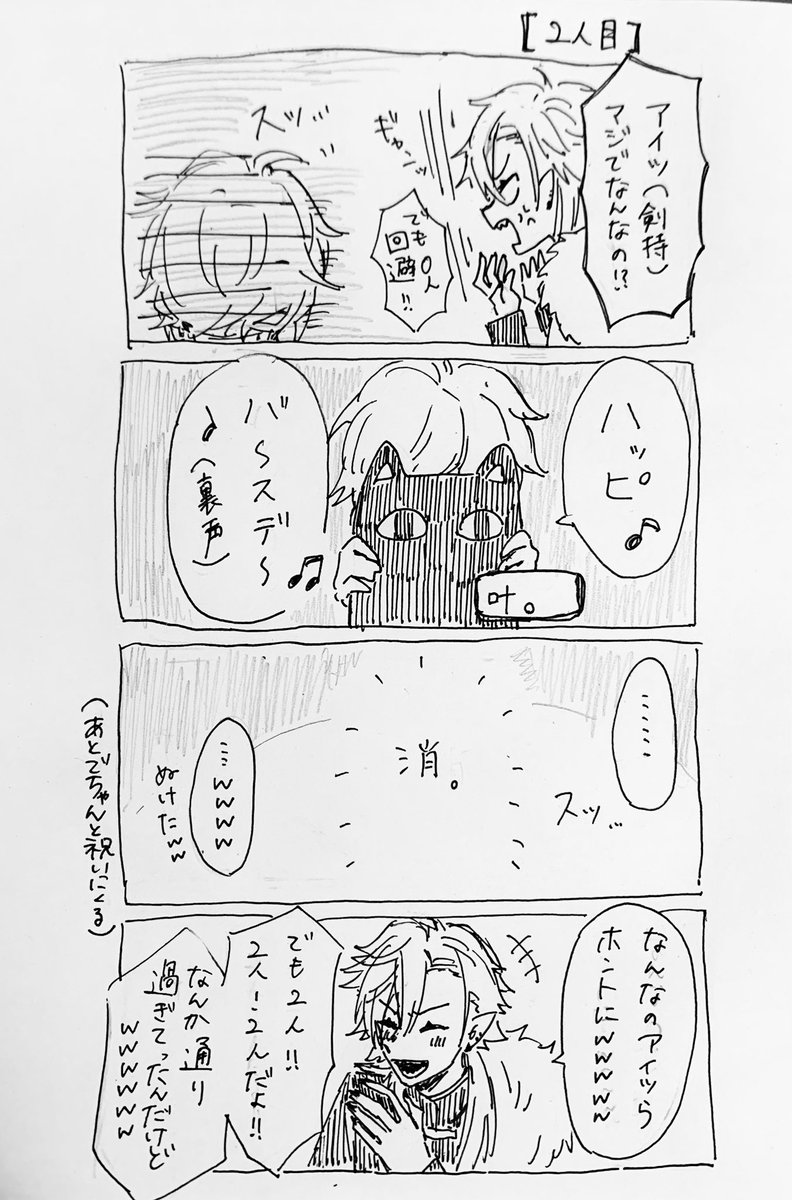 【2人目】
アイツ(剣持)
マジでなんなの!?
ギャンッ
でも0人
回避!!
スッ…
ハッピ♪
バ〜スデ〜
♪(裏声)♫
叶。
……
スッ…
消。
…wwww
ぬけたww
(あとでちゃんと祝いにくる)
なんなのアイツら
ホントにwwwww
でも2人!!
2人!2人だよ!!
なんか通り
過ぎてったんだけど
wwwwww